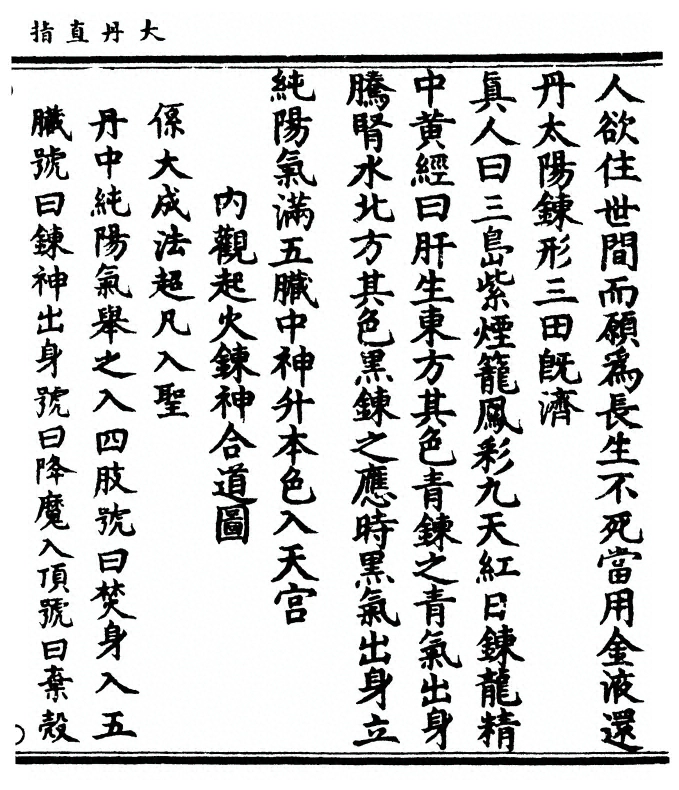 大丹直指
人欲住世間而願為長生不死當用金液還
丹太陽鍊形三田旣濟
眞人曰三島紫煙籠鳳彩九天紅日鍊龍精
中黄經曰肝生東方其色青鍊之青氣出身
騰腎水北方其色黑鍊之應時黑氣出身立
純陽氣滿五臟中神升本色入天宫
內觀起火鍊神合道圖
係大成法超凡入聖
丹中純陽氣舉之入四肢號曰焚身入五
臟號曰鍊神出身號曰降魔入頂號曰棄殻